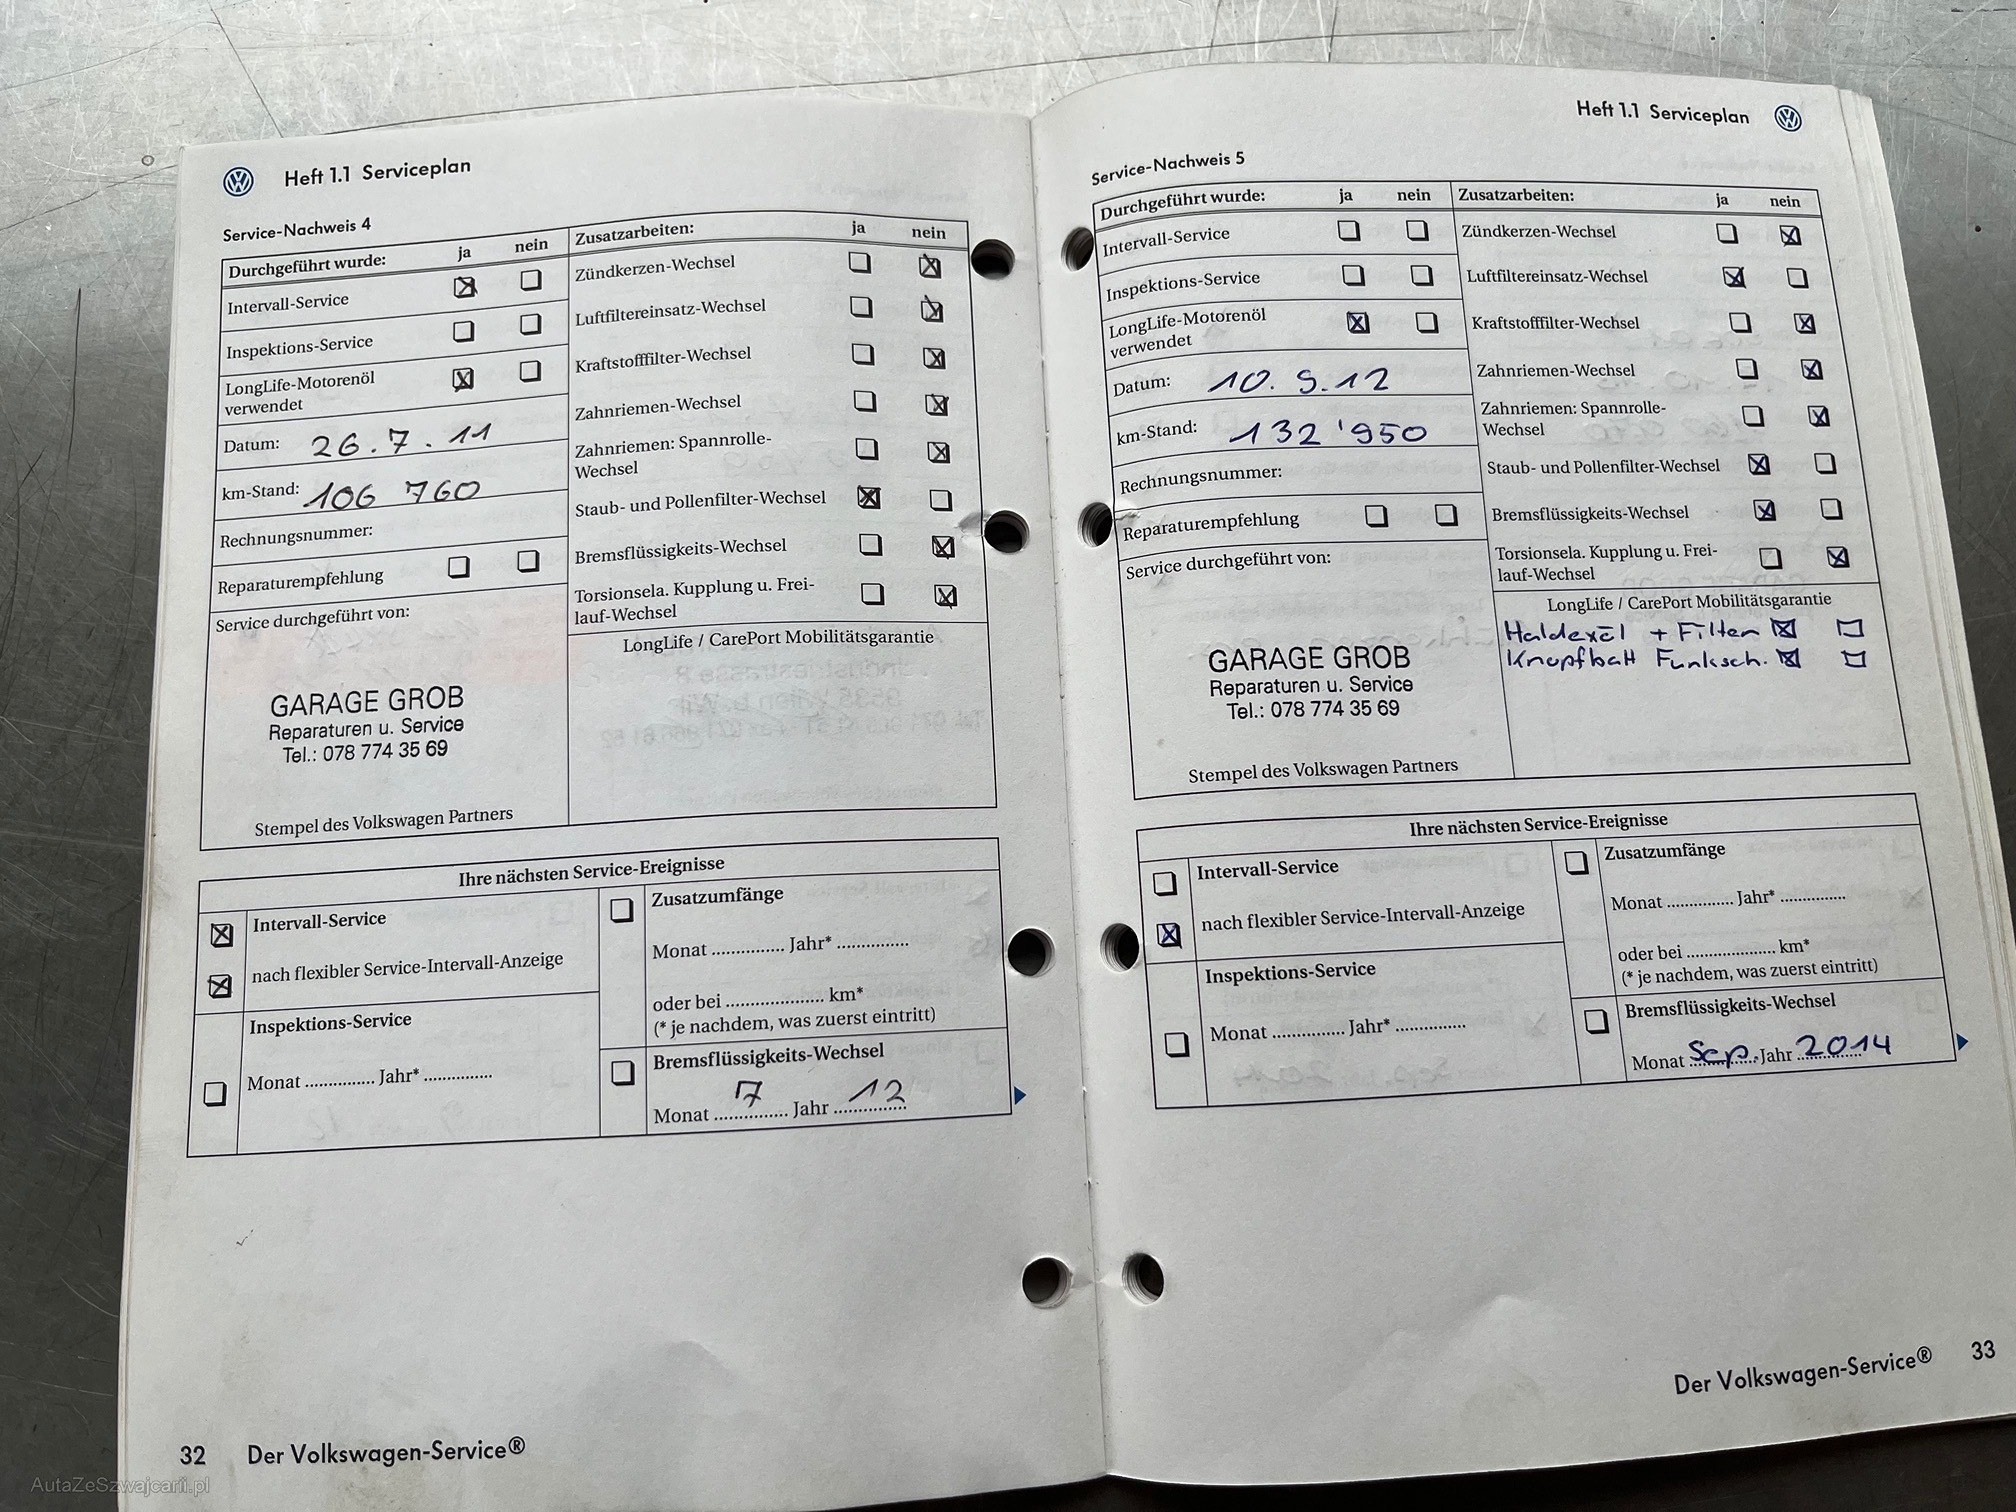 Heft 1.1 Serviceplan
Service-Nachweis 4
Durchgeführt wurde: ja nein
Intervall-Service
Inspektions-Service
LongLife-Motorenöl
verwendet
Datum: 26.7.11
km-Stand: 106 760
Rechnungsnummer:
Reparaturempfehlung
Service durchgeführt von:
GARAGE GROB
Reparaturen u. Service
Tel.: 078 774 35 69
Stempel des Volkswagen Partners
Zusatzarbeiten: ja nein
Zündkerzen-Wechsel
Luftfiltereinsatz-Wechsel
Kraftstofffilter-Wechsel
Zahnriemen-Wechsel
Zahnriemen: Spannrolle-
Wechsel
Staub- und Pollenfilter-Wechsel
Bremsflüssigkeits-Wechsel
Torsionsela. Kupplung u. Frei-
lauf-Wechsel
LongLife / CarePort Mobilitätsgarantie
Ihre nächsten Service-Ereignisse
Intervall-Service
nach flexibler Service-Intervall-Anzeige
Inspektions-Service
Monat ............... Jahr* ...............
Zusatzumfänge
Monat ............... Jahr* ...............
oder bei ..................... km*
(* je nachdem, was zuerst eintritt)
Bremsflüssigkeits-Wechsel
Monat 7 Jahr 12
32 Der Volkswagen-Service®
Heft 1.1 Serviceplan
Service-Nachweis 5
Durchgeführt wurde: ja nein
Intervall-Service
Inspektions-Service
LongLife-Motorenöl
verwendet
Datum: 10.9.12
km-Stand: 132'950
Rechnungsnummer:
Reparaturempfehlung
Service durchgeführt von:
GARAGE GROB
Reparaturen u. Service
Tel.: 078 774 35 69
Stempel des Volkswagen Partners
Zusatzarbeiten: ja nein
Zündkerzen-Wechsel
Luftfiltereinsatz-Wechsel
Kraftstofffilter-Wechsel
Zahnriemen-Wechsel
Zahnriemen: Spannrolle-
Wechsel
Staub- und Pollenfilter-Wechsel
Bremsflüssigkeits-Wechsel
Torsionsela. Kupplung u. Frei-
lauf-Wechsel
LongLife / CarePort Mobilitätsgarantie
Haldexöl + Filter
Knopfbatt Funksch.
Ihre nächsten Service-Ereignisse
Intervall-Service
nach flexibler Service-Intervall-Anzeige
Inspektions-Service
Monat ............... Jahr* ...............
Zusatzumfänge
Monat ............... Jahr* ...............
oder bei ..................... km*
(* je nachdem, was zuerst eintritt)
Bremsflüssigkeits-Wechsel
Monat Sep. Jahr 2014
Der Volkswagen-Service® 33
AutaZeSzwajcarii.pl